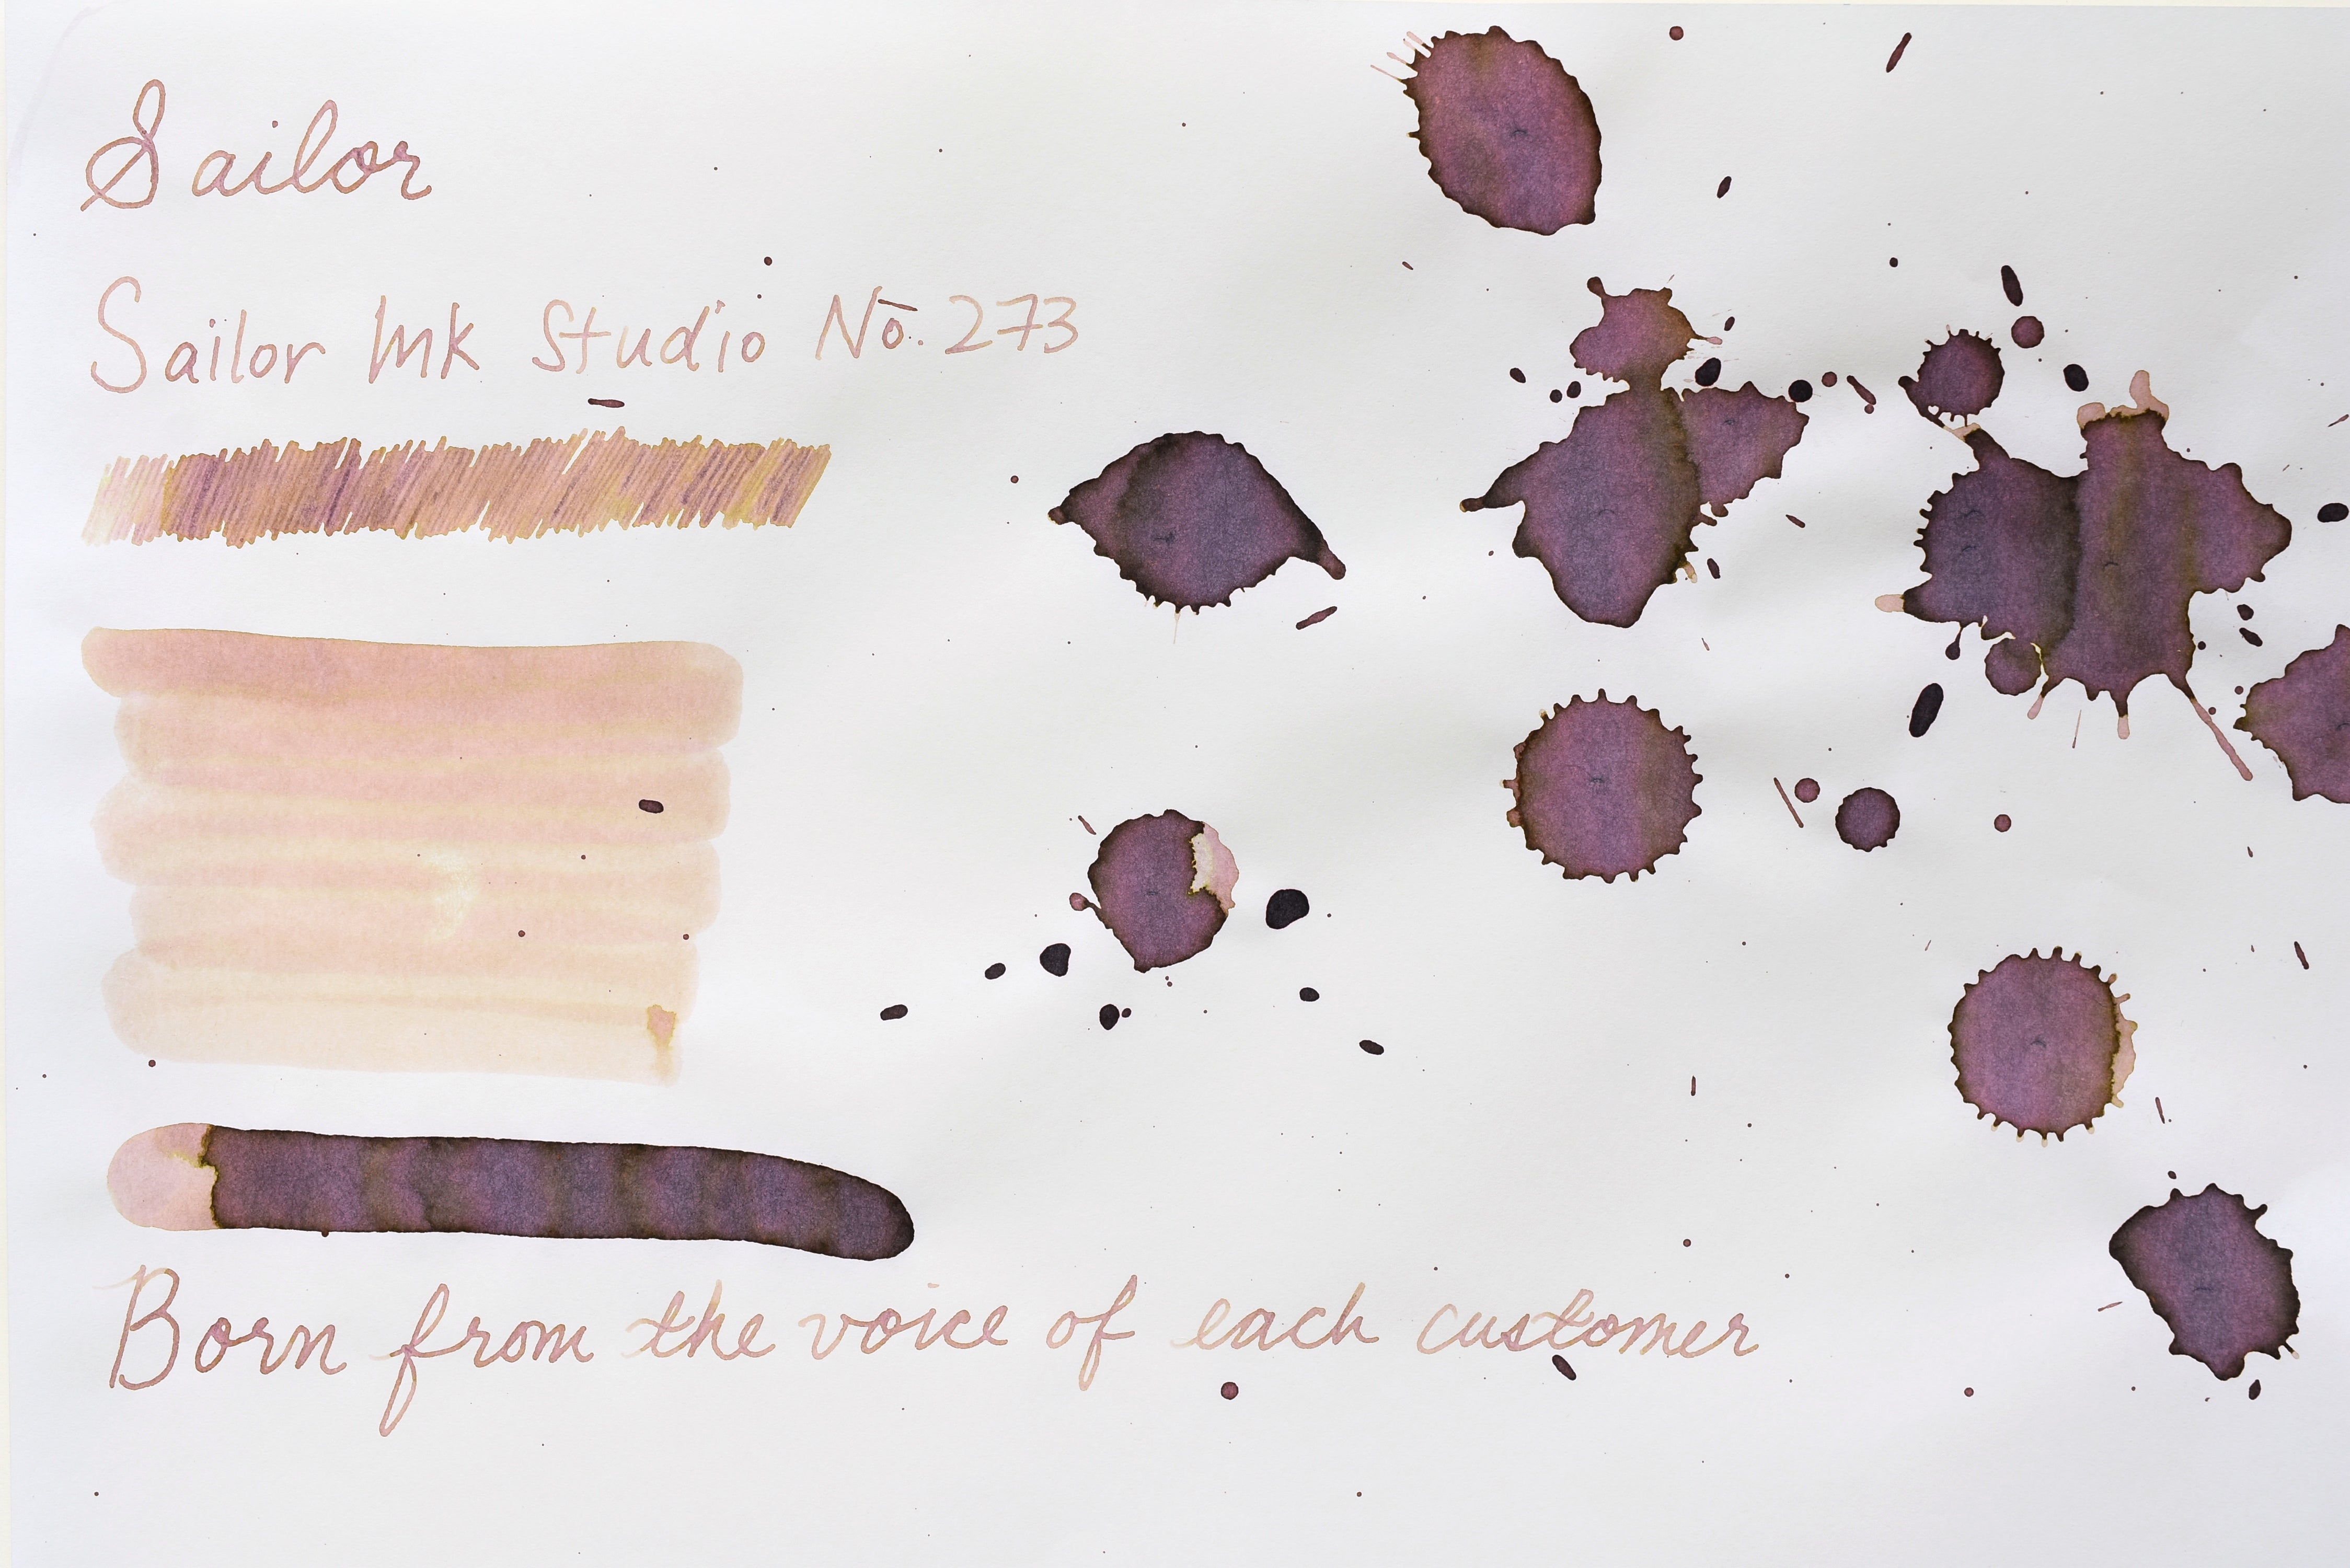 Sailor
Sailor Ink Studio No. 273
Born from the voice of each customer